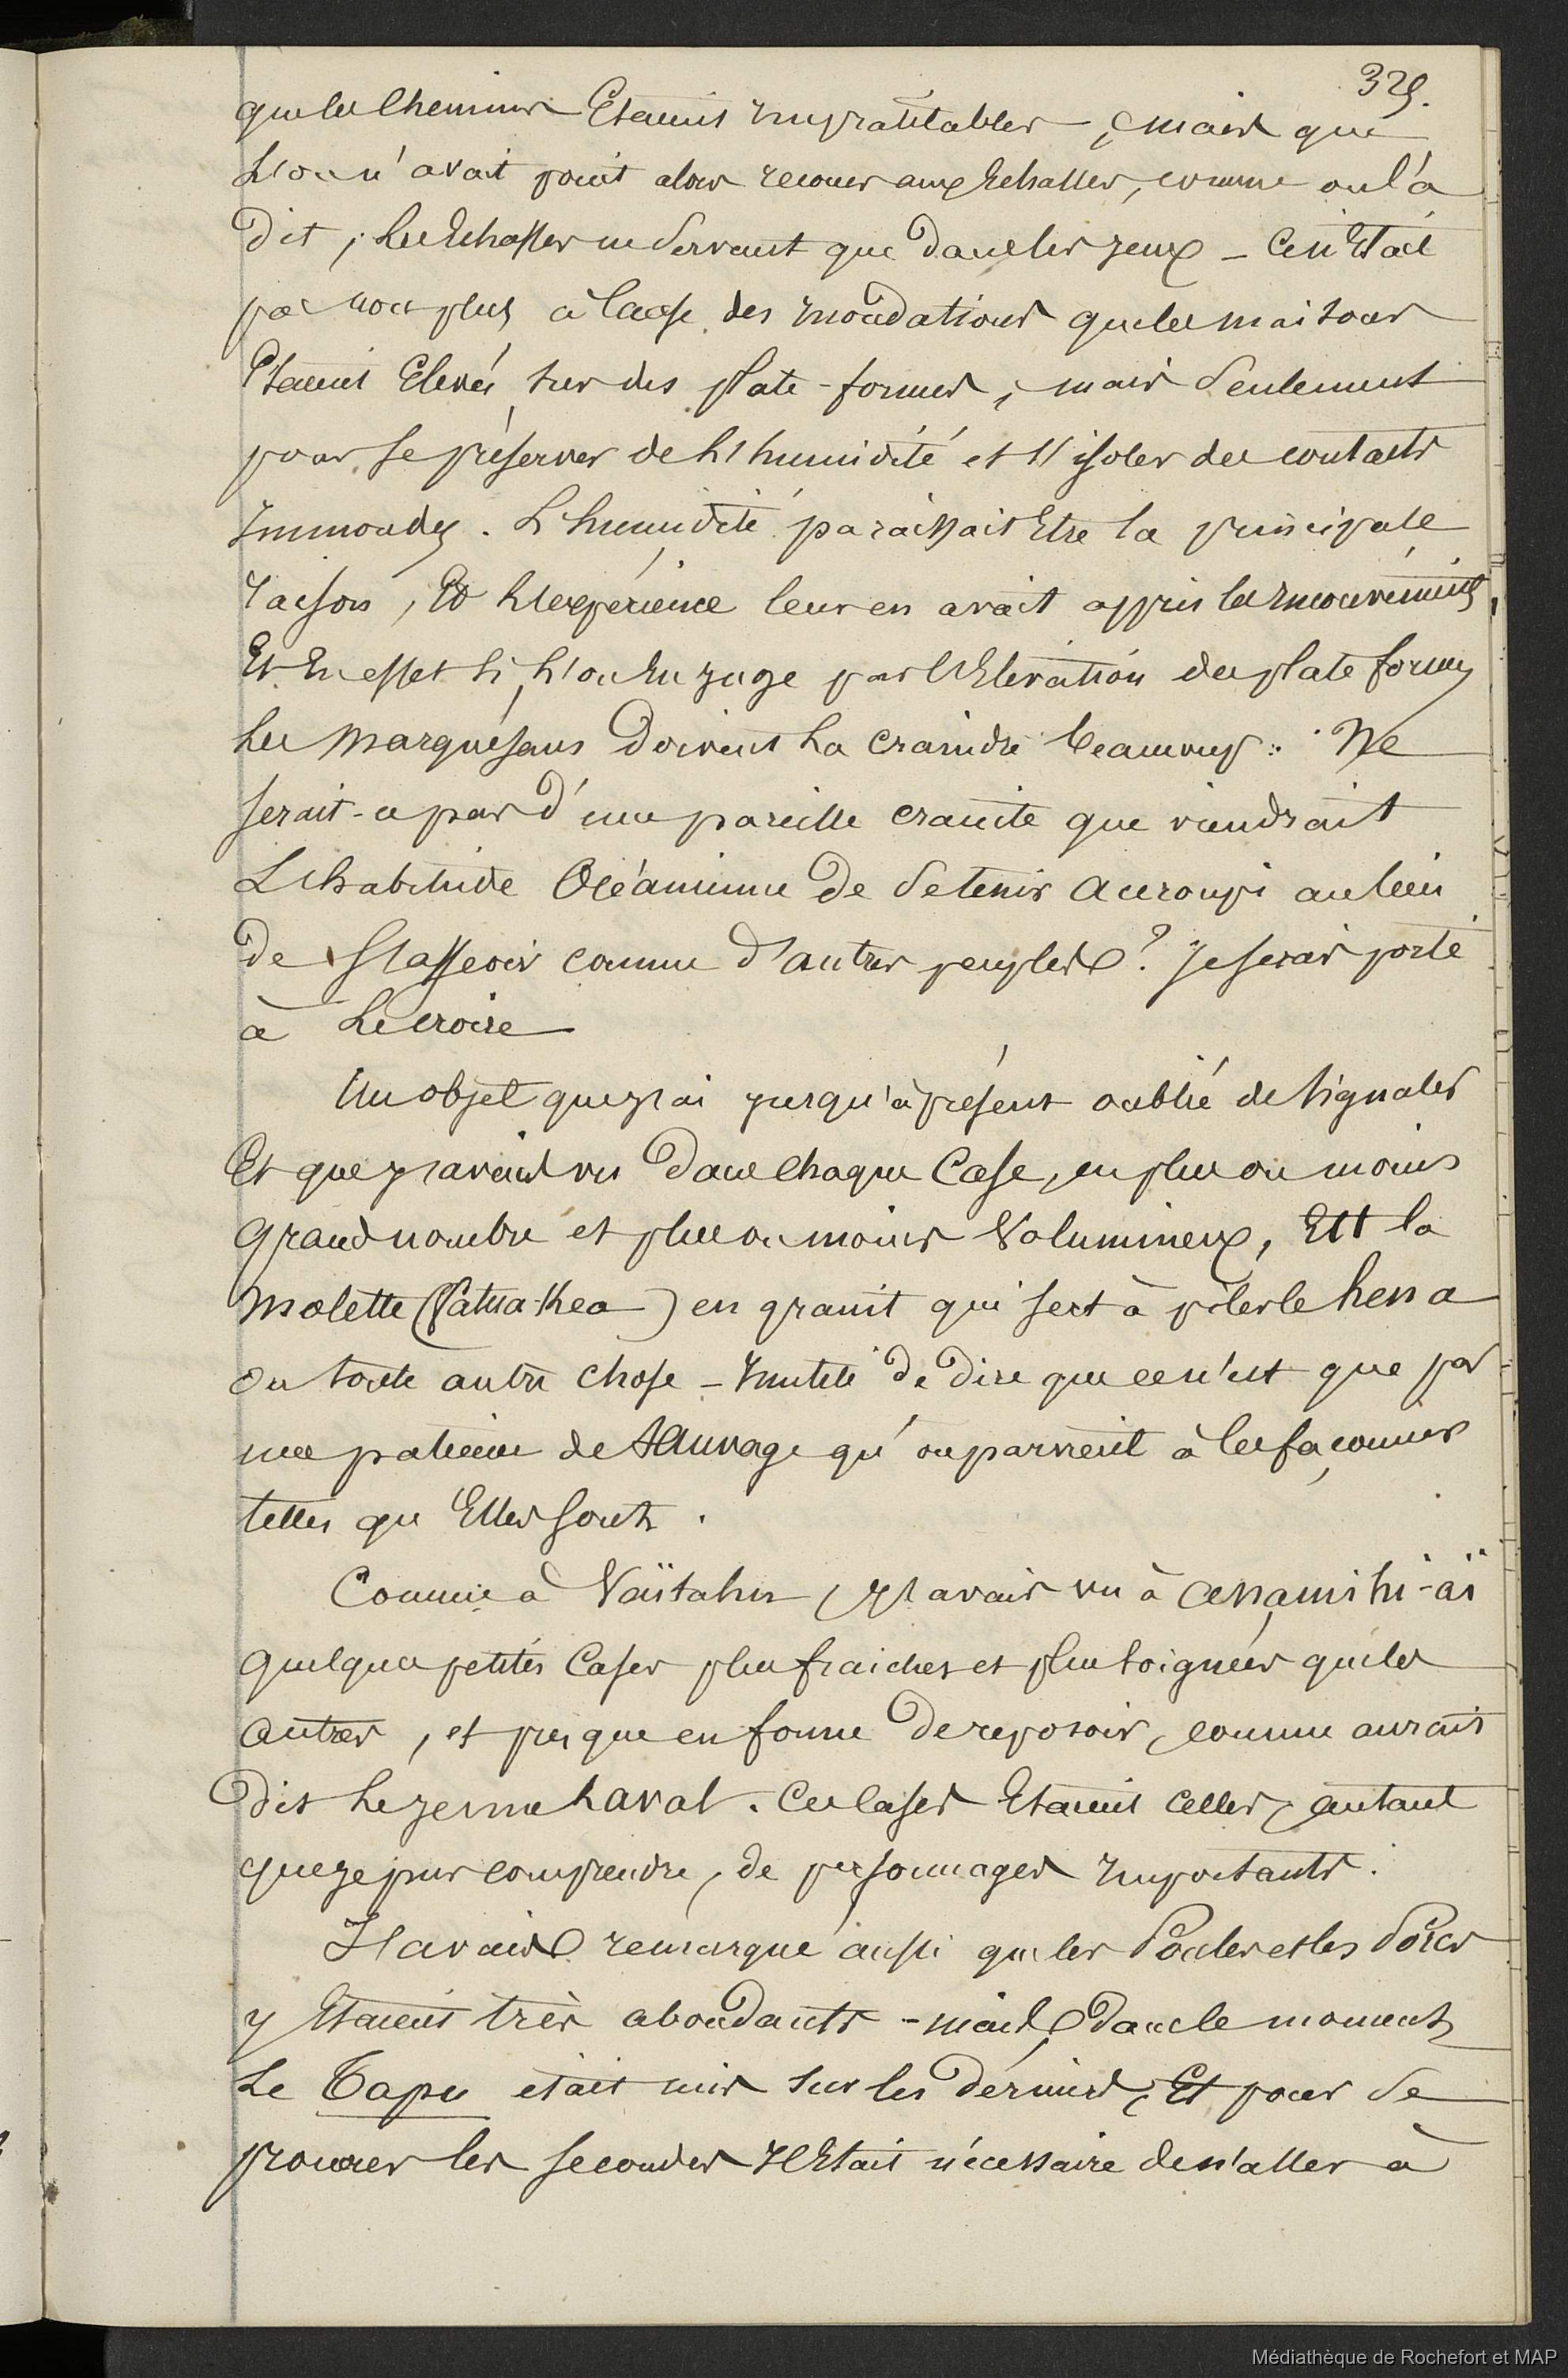 329.
que les Chemins Etaient impraticables, mais que
L'on n'avait point alors recours aux Echasses, comme on l'a
Dit; Les Echasses ne Servent que Dans les jeux - Ce n'Etait
pas non plus à Cause des inondations que les maisons
Etaient Elevées sur des plate-formes, mais Seulement
pour se préserver de l'humidité et s'isoler des contacts
Immondes. L'humidité paraissait Etre la principale
raison, Et L'expérience leur en avait appris les inconvénients,
Et En effet si L'on En juge par l'Elévation des plate formes
Les Marquésans Doivent La craindre beaucoup. Ne
serait-ce pas D'une pareille crainte que viendrait
L'habitude Océanienne De Se tenir accroupi au lieu
De S'asseoir comme D'autres peuples? Je serais porté
à Le croire
Un objet que j'ai jusqu'à présent oublié de Signaler
Et que j'avais vu Dans Chaque Case, en plus ou moins
grand nombre et plus ou moins Volumineux, Est la
Molette (Patua-Kea) en granit qui sert à piler le
ou toute autre chose - Inutile De Dire que ce n'est que par
une patience de Sauvage qu'on parvient à les façonner
telles qu'Elles sont.
Comme à Vaïtahu, j'avais vu à anamihi-aï
quelques petites Cases plus fraiches et plus soignées que les
autres, et presque en forme De reposoir, comme aurait
Dit Le jeune Laval. Ces Cases Etaient Celles, autant
que je pus comprendre, de personnages Importants.
J'avais remarqué aussi que les Poules et les Porcs
y Etaient très abondants - mais Dans le moment
Le Tapu était mis sur les Derniers, Et pour Se
procurer les secondes Il Etait nécessaire de m'aller à
Médiathèque de Rochefort et MAP